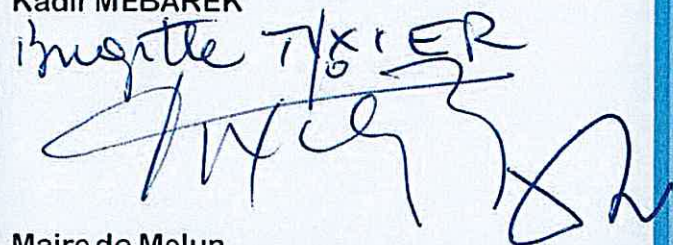 Kadir MEBAREK
Brigitte TIXIER
Maire de Melun